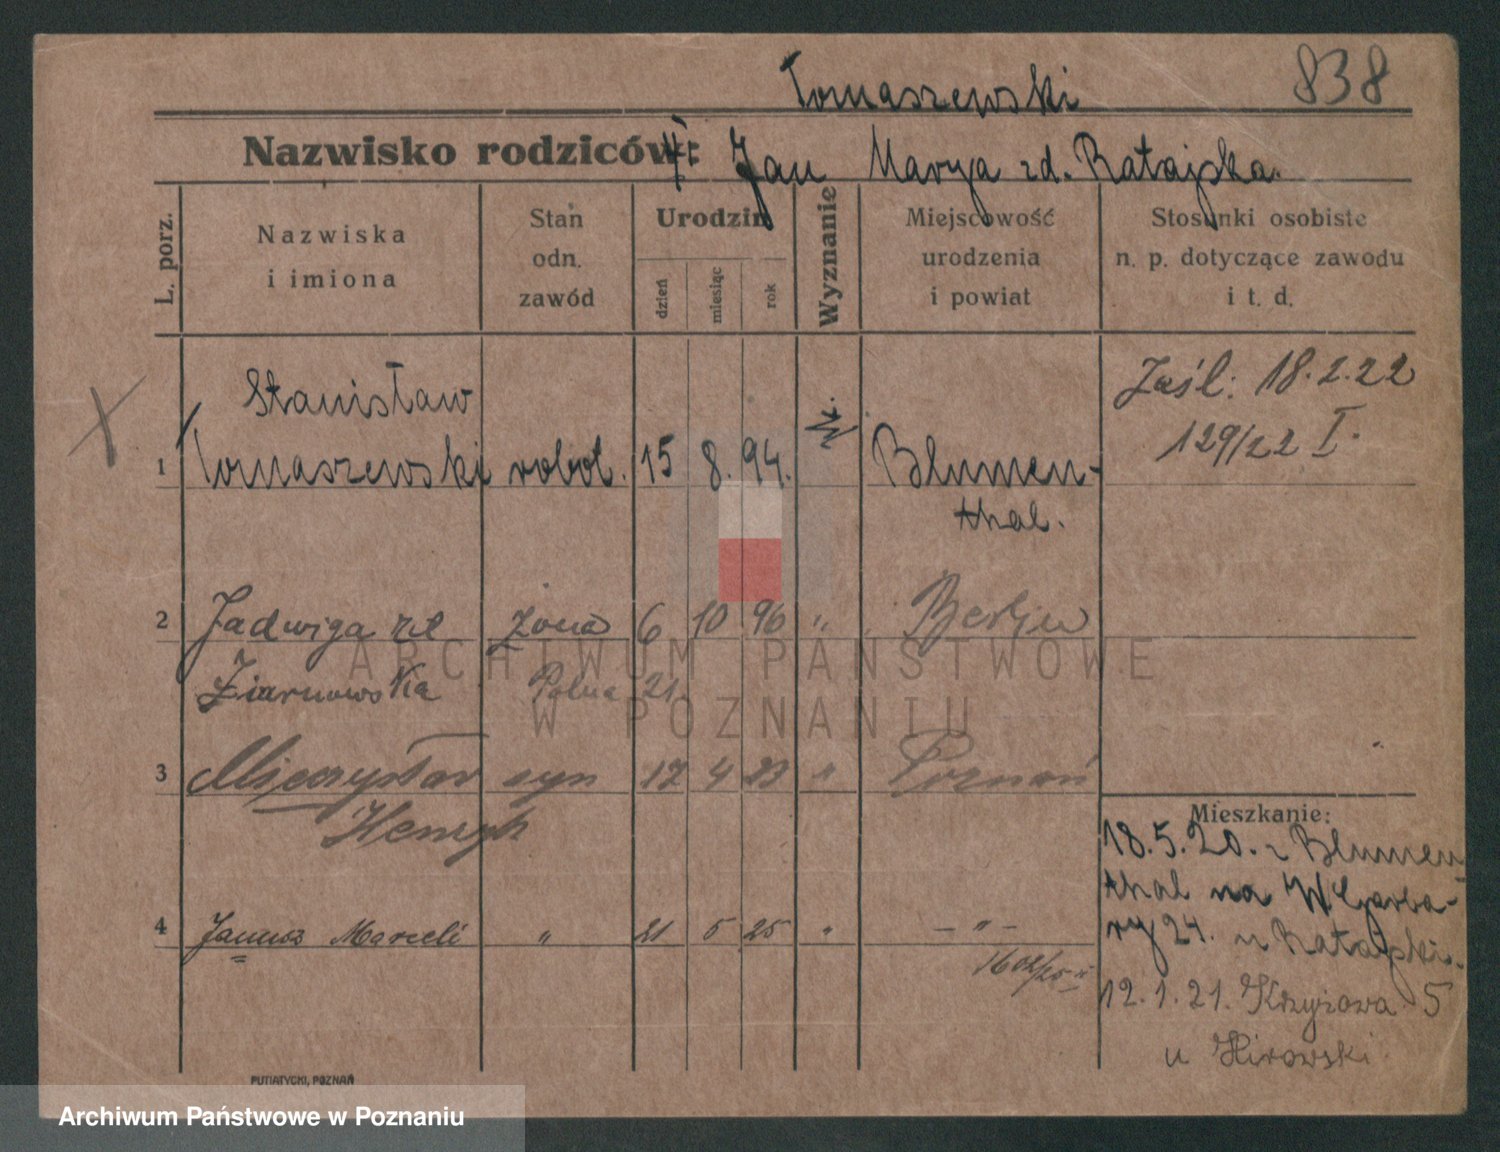 838
Tomaszewski
Nazwisko rodziców: Jan Marya zd. Ratajska.
L. porz.
Nazwiska
i imiona
Stan
odn.
zawód
Urodzin
dzień
miesiąc
rok
Wyznanie
Miejscowość
urodzenia
i powiat
Stosunki osobiste
n. p. dotyczące zawodu
i t. d.
Zaśl: 18.2.22
129/22 I.
Stanisław
1 Tomaszewski robot. 15 8. 94. Blumen-
thal.
2 Jadwiga zd Żona 6 10 96 " Berlin
Ziarnowska 21
3 Mieczysław syn 17 4 23 " Poznań
Henryk
4 Janusz Marceli " 21 5 25 " - " -
1602/25 II
Mieszkanie:
18.5.20. z Blumen-
thal na W Garba-
ry 24. u Ratajski.
12.1.21. Krzyżowa 5
u Hirowski
PUTIATYCKI, POZNAŃ
ARCHIWUM PAŃSTWOWE
W POZNANIU
Archiwum Państwowe w Poznaniu